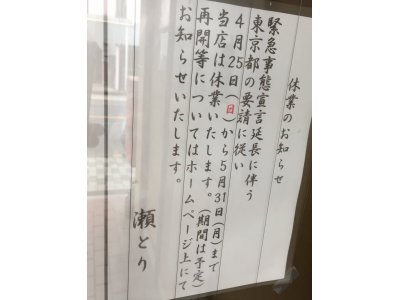 休業のお知らせ
緊急事態宣言延長に伴う
東京都の要請に従い
４月25日(日)から５月31日(月)まで
当店は休業いたします。(期間は予定)
再開等についてはホームページ上にて
お知らせいたします。
瀬とり